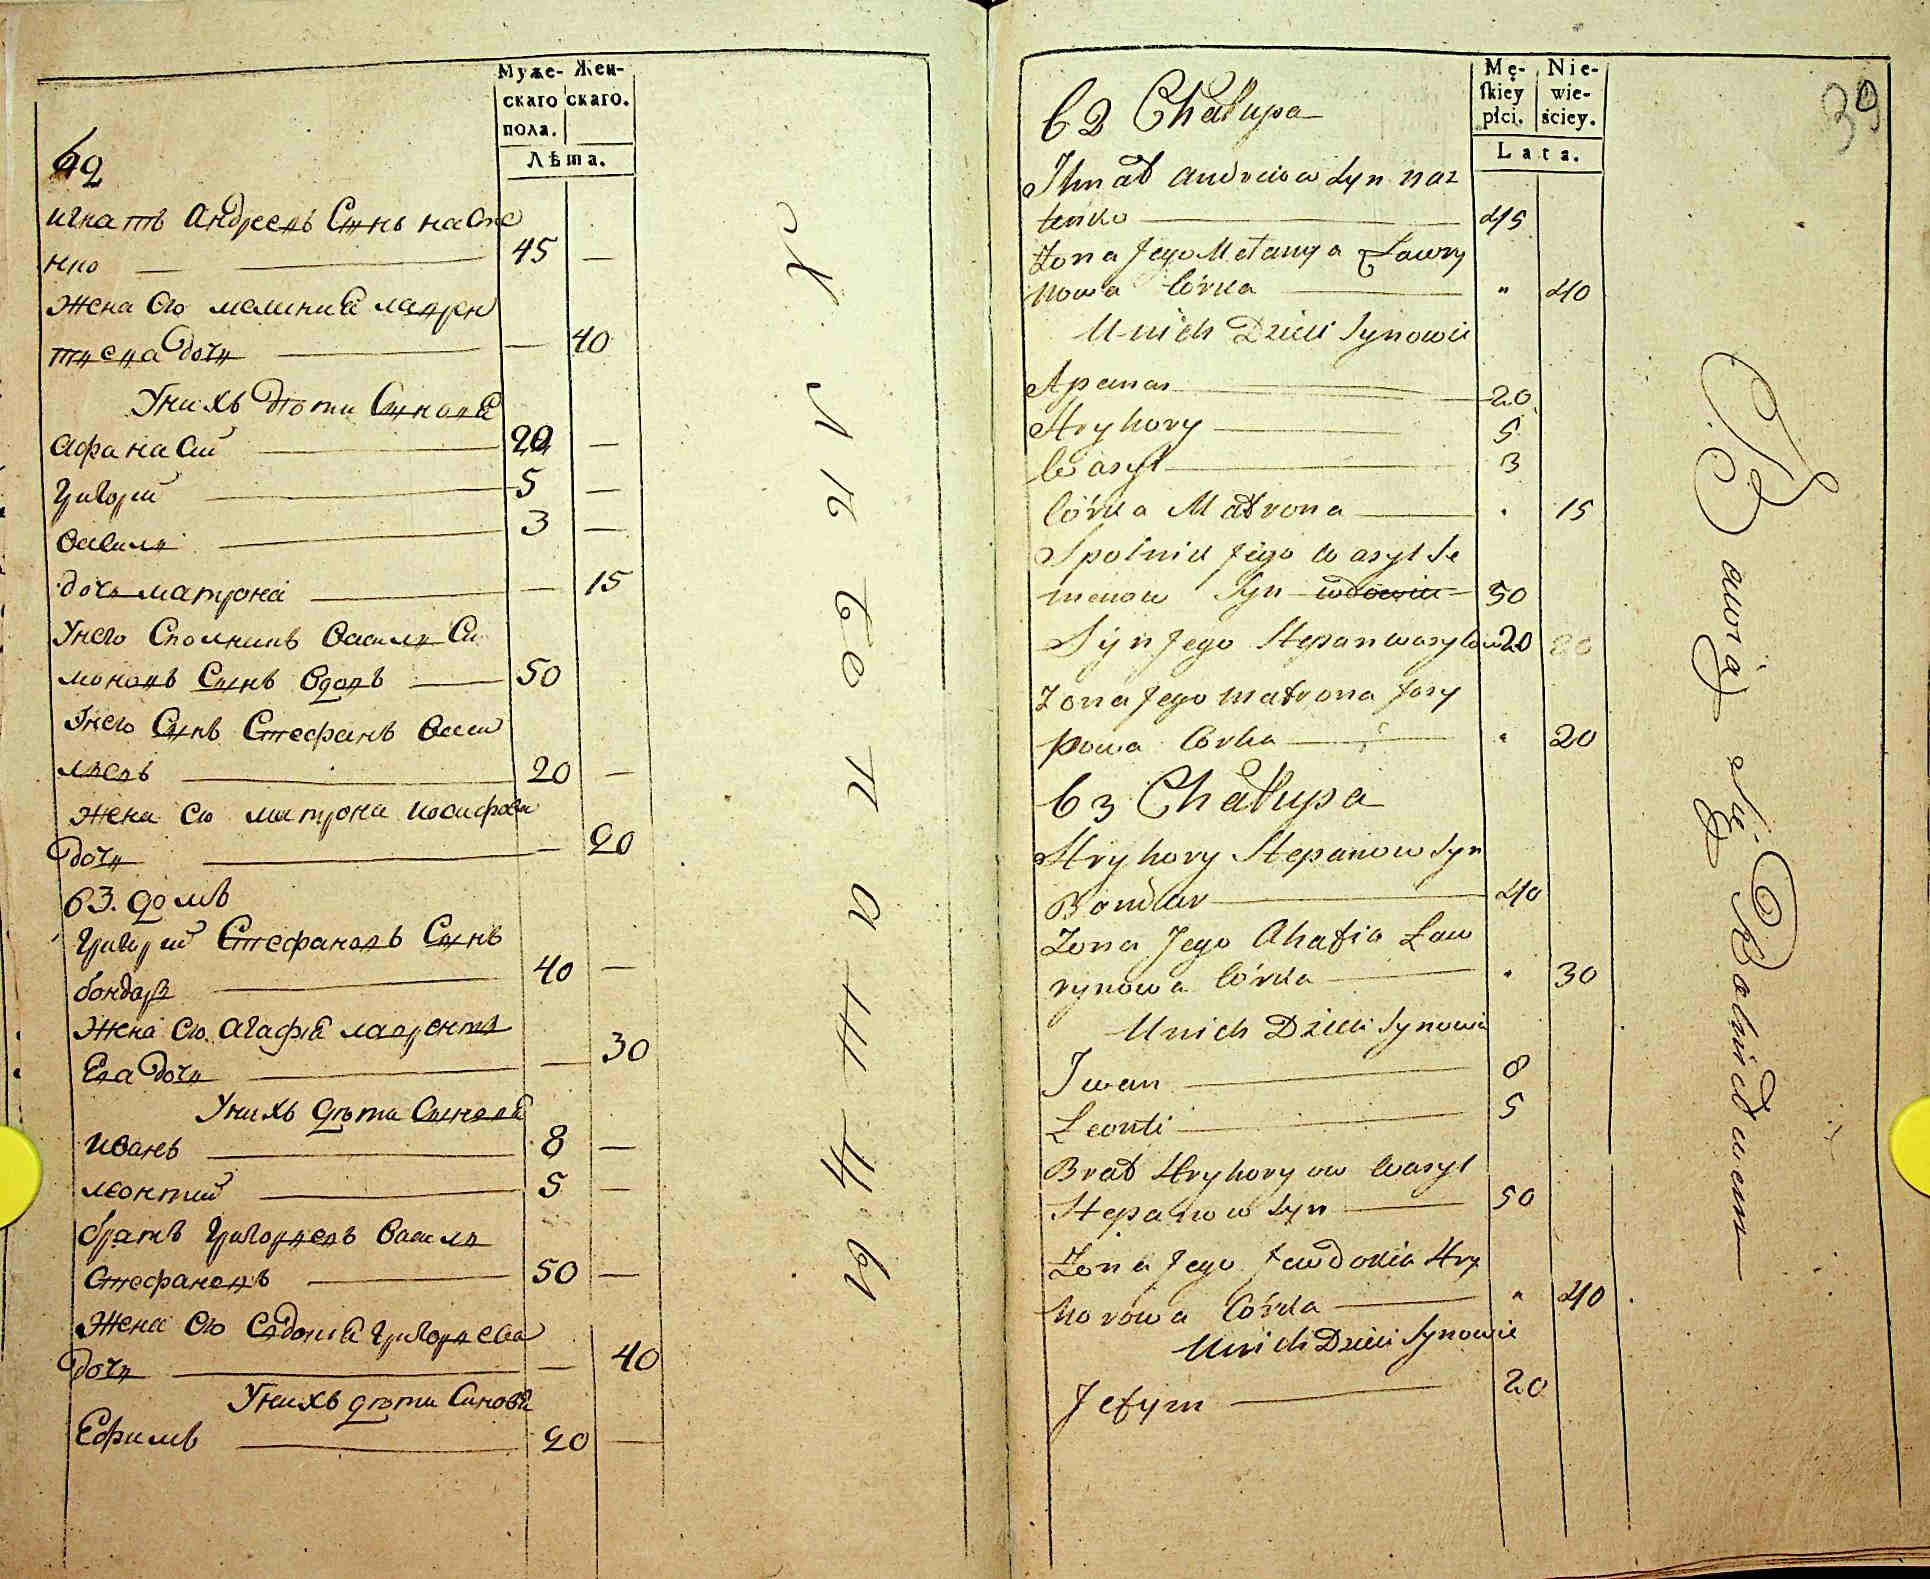 Муже- Жен-
скаго скаго.
пола.
Лѣта.
62
игнатъ Андреевъ Сынъ насте
нко 45 —
жена его меланиа лаврен
тиева дочи — 40
У нихъ дѣти Сынова
афанасий 20 —
григорий 5 —
василь 3 —
дочь матрона — 15
У него Сполникъ василь Си
моновъ Сынъ вдовъ 50
У него Сынъ Стефанъ васи
льевъ 20 —
жена его матрона иосифова
дочи — 20
63. домъ
григорий Стефановъ Сынъ
бондарь 40 —
жена его агафиа лаврентi
Ева дочи — 30
У нихъ дѣти Сынова
иванъ 8 —
леонтий 5 —
братъ григориевъ василь
Стефановъ 50 —
жена его Евдокиа григориева
дочи — 40
У нихъ дѣти Синова
Ефимъ 20 —
Хлѣбопашцы
39
Mę- Nie-
skiey wie-
płci. ściey.
Lata.
62 Chałupa
Ihnat Andreiow Syn nas
tenko 45
Żona Jego Mełanya Ławry
nowa Córka " 40
U nich Dzieci Synowie
Apanas 20
Hryhory 5
Wasyl 3
Córka Matrona " 15
Spolnik Jego Wasyl Se
menow Syn wdowiec 50
Syn Jego Stepan Wasylow 20 20
Żona Jego Matrona Josy
powa Córka " 20
63 Chałupa
Hryhory Stepanow Syn
Bondar 40
Żona Jego Ahafia Ław
rynowa Córka " 30
U nich Dzieci Synowie
Iwan 8
Leonti 5
Brat Hryhoryow Wasyl
Stepanow Syn 50
Żona Jego Jewdokia Hry
horowa Córka " 40
U nich Dzieci Synowie
Jefym 20
Bawią się Rolnictwem